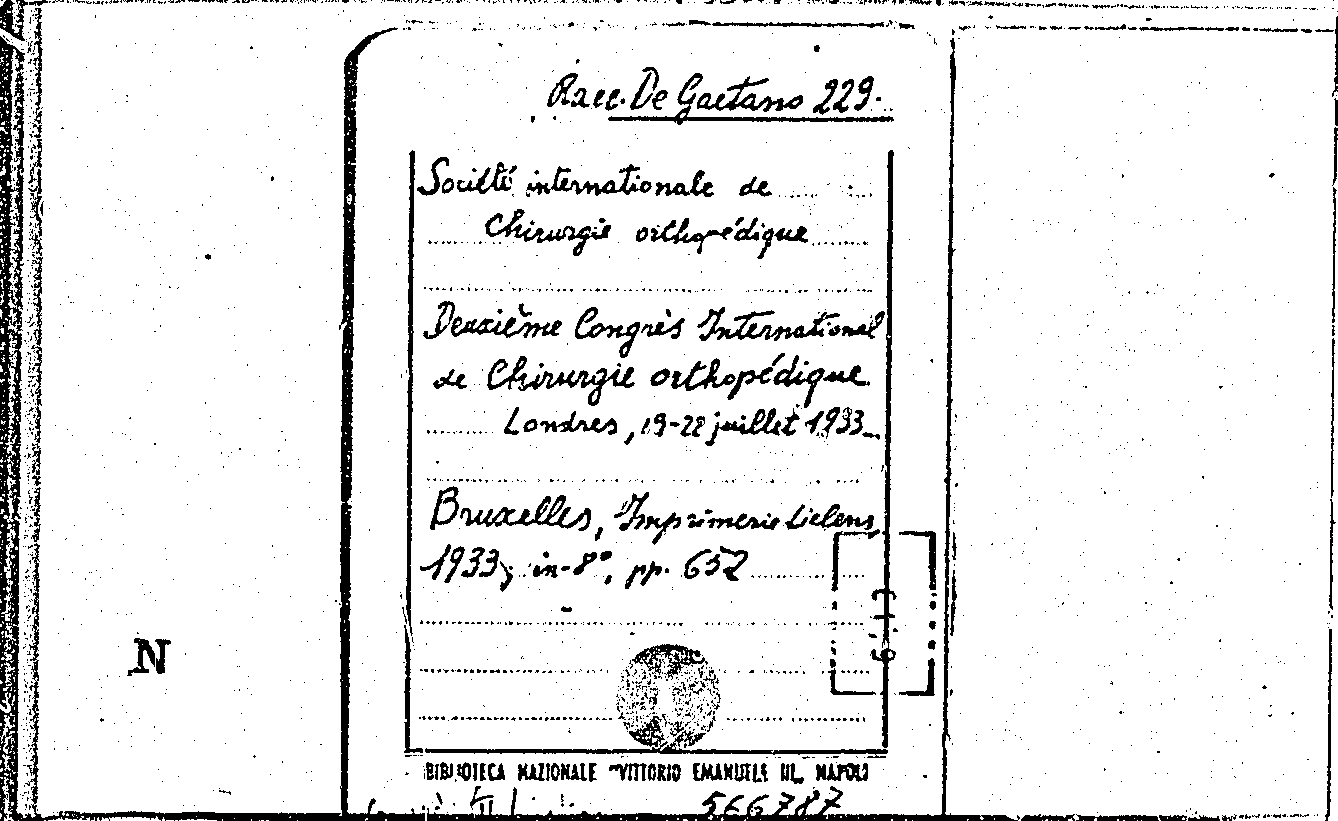 Racc. De Gaetano 229.
Société internationale de
Chirurgie orthopédique
Deuxième Congrès International
de Chirurgie orthopédique
Londres, 19-22 juillet 1933
Bruxelles, Imprimerie Lielens,
1933; in-8°, pp. 652
N
BIBLIOTECA NAZIONALE "VITTORIO EMANUELE III" NAPOLI
566787